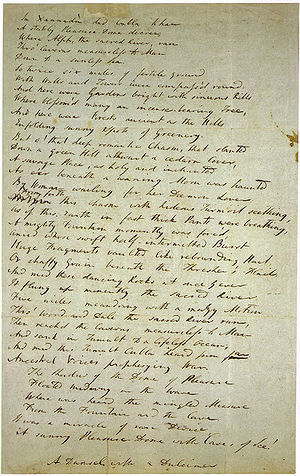 In Xannadù did Cubla Khan
A stately Pleasure Dome decree;
Where Alph, the sacred River, ran
Thro' Caverns measureless to Man
Down to a sunless Sea.
So twice six miles of fertile ground
With Walls and Towers were compass'd round
And here were Gardens bright with sinuous Rills
Where blossom'd many an incense-bearing Tree,
And here were Forests ancient as the Hills
Enfolding sunny Spots of Greenery.
But o! that deep romantic Chasm, that slanted
Down a green Hill athwart a cedarn Cover,
A savage Place, as holy and inchanted
As e'er beneath a waning Moon was haunted
By Woman wailing for her Dæmon Lover
this Chasm with hideous Turmoil seething,
As if this Earth in fast thick Pants were breathing,
A mighty Fountain momently was forc'd,
Amid whose swift half-intermitted Burst
Huge Fragments vaulted like rebounding Hail,
Or chaffy Grain beneath the Thresher's Flail
And mid these dancing Rocks at once & ever
It flung up momently the sacred River
Five miles meandering with a mazy Motion
Thro' Wood and Dale the sacred River ran,
Then reach'd the Caverns measureless to Man
And sank in Tumult to a lifeless Ocean;
And mid this Tumult Cubla heard from far
Ancestral Voices prophesying War.
The Shadow of the Dome of Pleasure
Floated midway on the Wave
Where was heard the mingled Measure
From the Fountain and the Cave
It was a miracle of rare Device
A sunny Pleasure-Dome with Caves of Ice!
A Damsel with a Dulcimer